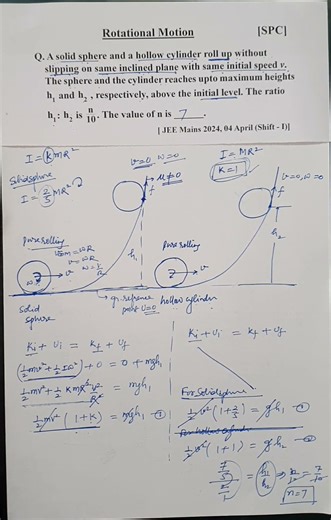 Rotational Motion [SPC]
Q. A solid sphere and a hollow cylinder roll up without
slipping on same inclined plane with same initial speed v.
The sphere and the cylinder reaches upto maximum heights
h₁ and h₂, respectively, above the initial level. The ratio
h₁: h₂ is n/10. The value of n is 7.
[ JEE Mains 2024, 04 April (Shift - I)]
I = KMR²
v=0, ω=0
I = MR²
K=1
Solid sphere
I = 2/5 MR²
μ≠0
f
f
v=0, ω=0
h₁
h₂
Pure rolling
v = ωR
ω = v/R
Pure rolling
ω
v
v
Solid
sphere
point U=0
hollow cylinder
Ki + Ui = Kf + Uf
(½mv² + ½Iω²) + 0 = 0 + mgh₁
½mv² + ½ K mR² v²/R² = mgh₁
½mv² (1 + K) = mgh₁ - ①
Ki + Ui = Kf + Uf
For Solid sphere
½v² (1 + 2/5) = gh₁ - ①
For hollow cylinder
½v² (1+1) = gh₂ - ②
7/5 / 2/1 = h₁/h₂ ⇒ n/10 = 7/10
n=7